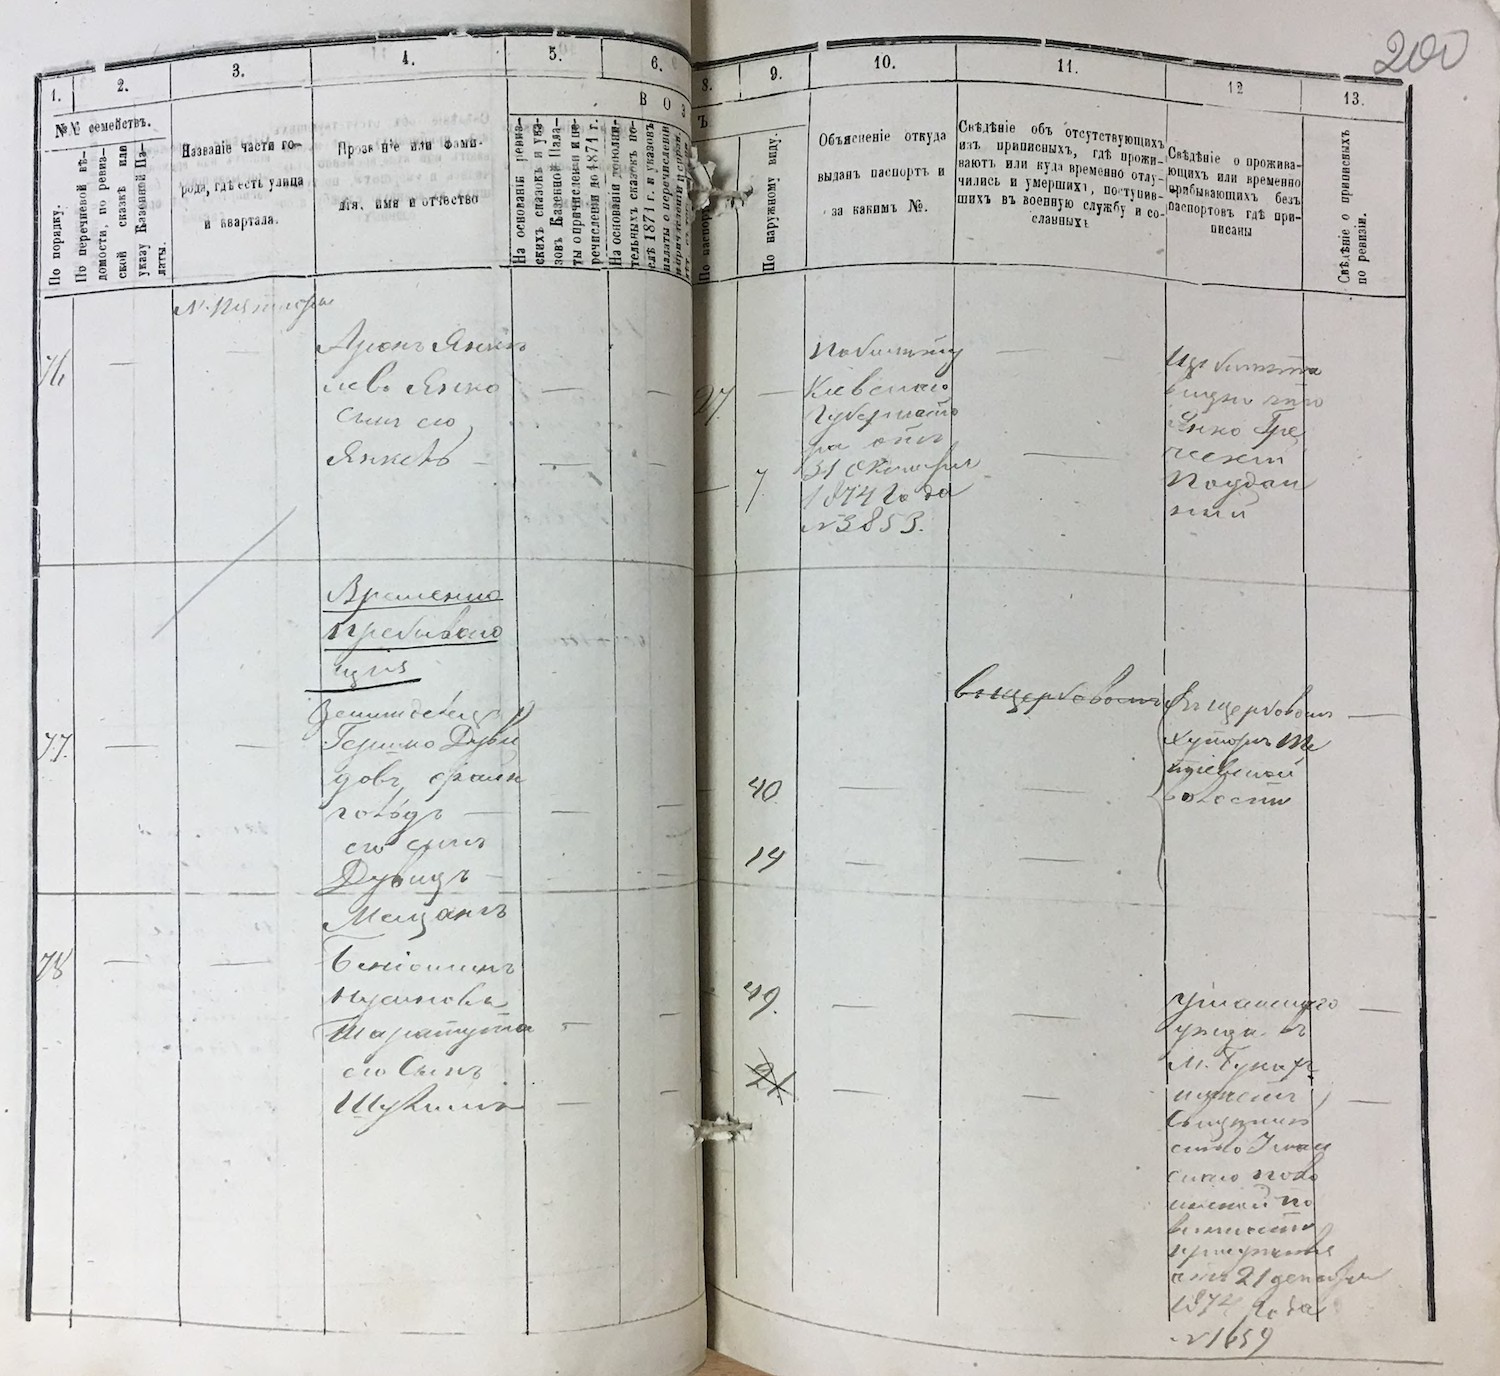 200
1.
2.
3.
4.
5.
6.
8.
9.
10.
11.
12
13.
№№ семействъ.
В О З
Ъ.
По порядку.
По перечневой вѣ-
домости, по ревиз-
ской сказкѣ или
указу Казенной Па-
латы.
Названіе части го-
рода, гдѣ есть улица
и квартала.
Прозвніе или фами-
лія, имя и отчество
На основаніи ревиз-
скихъ сказокъ и ука-
зовъ Казенной Пала-
ты о причисленіи и пе-
речисленіи до 1871 г.
На основаніи дополни-
тельныхъ сказокъ по-
слѣ 1871 г. и указовъ
палаты о перечисленіи
По паспорт
По наружному виду.
Объясненіе откуда
выданъ паспортъ и
за какимъ №.
Свѣдѣніе объ отсутствующихъ
изъ приписныхъ, гдѣ прожи-
ваютъ или куда временно отлу-
чились и умершихъ, поступив-
шихъ въ военную службу и со-
сланныхъ
Свѣдѣніе о прожива-
ющихъ или временно
прибывающихъ безъ
паспортовъ гдѣ при-
писаны
Свѣдѣніе о приписныхъ
по ревизіи.
М. Пятигоры
76
Аронъ Янкѣ
левъ Янко
сынъ его
Янкель
27
7
По билету
Кіевскаго
Губернато
ра отъ
31 Октября
1874 Года
№ 3853.
Янко Гре
ческій
Поддан
ный
Временно
пребываю
щія
77
Гершко Дуви
довъ Файн
гольдъ
его сынъ
Дувидъ
40
14
въ щербовомъ
Въ щербовомъ
хуторѣ Те
тіевской
волости
78
Мещанъ
Беніоминъ
Нусиновъ
Шарапута
его Сынъ
Шулимъ
49.
21.
Уманскаго
уѣзда въ
М. Букахъ
Свидѣтель
ство Уман
скаго по во
инской по
винности
присутствія
отъ 21 декабря
1874 Года
№ 1659